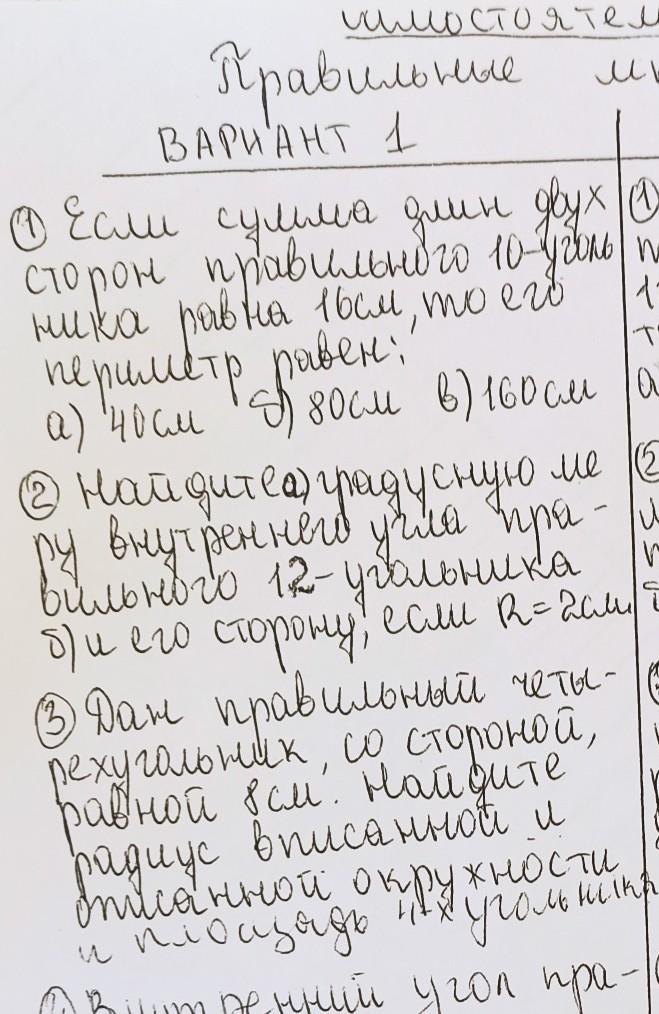 Правильные
ВАРИАНТ 1
① Если сумма длин двух
сторон правильного 10-уголь
ника равна 16см, то его
периметр равен:
а) 40см б) 80см в) 160см
② Найдите а) градусную ме
ру внутреннего угла пра-
вильного 12-угольника
б) и его сторону, если R=2см.
③ Дан правильный четы-
рехугольник, со стороной,
равной 8см. Найдите
радиус вписанной и
описанной окружности
и площадь 4-х угольника
④ Внутренний угол пра-